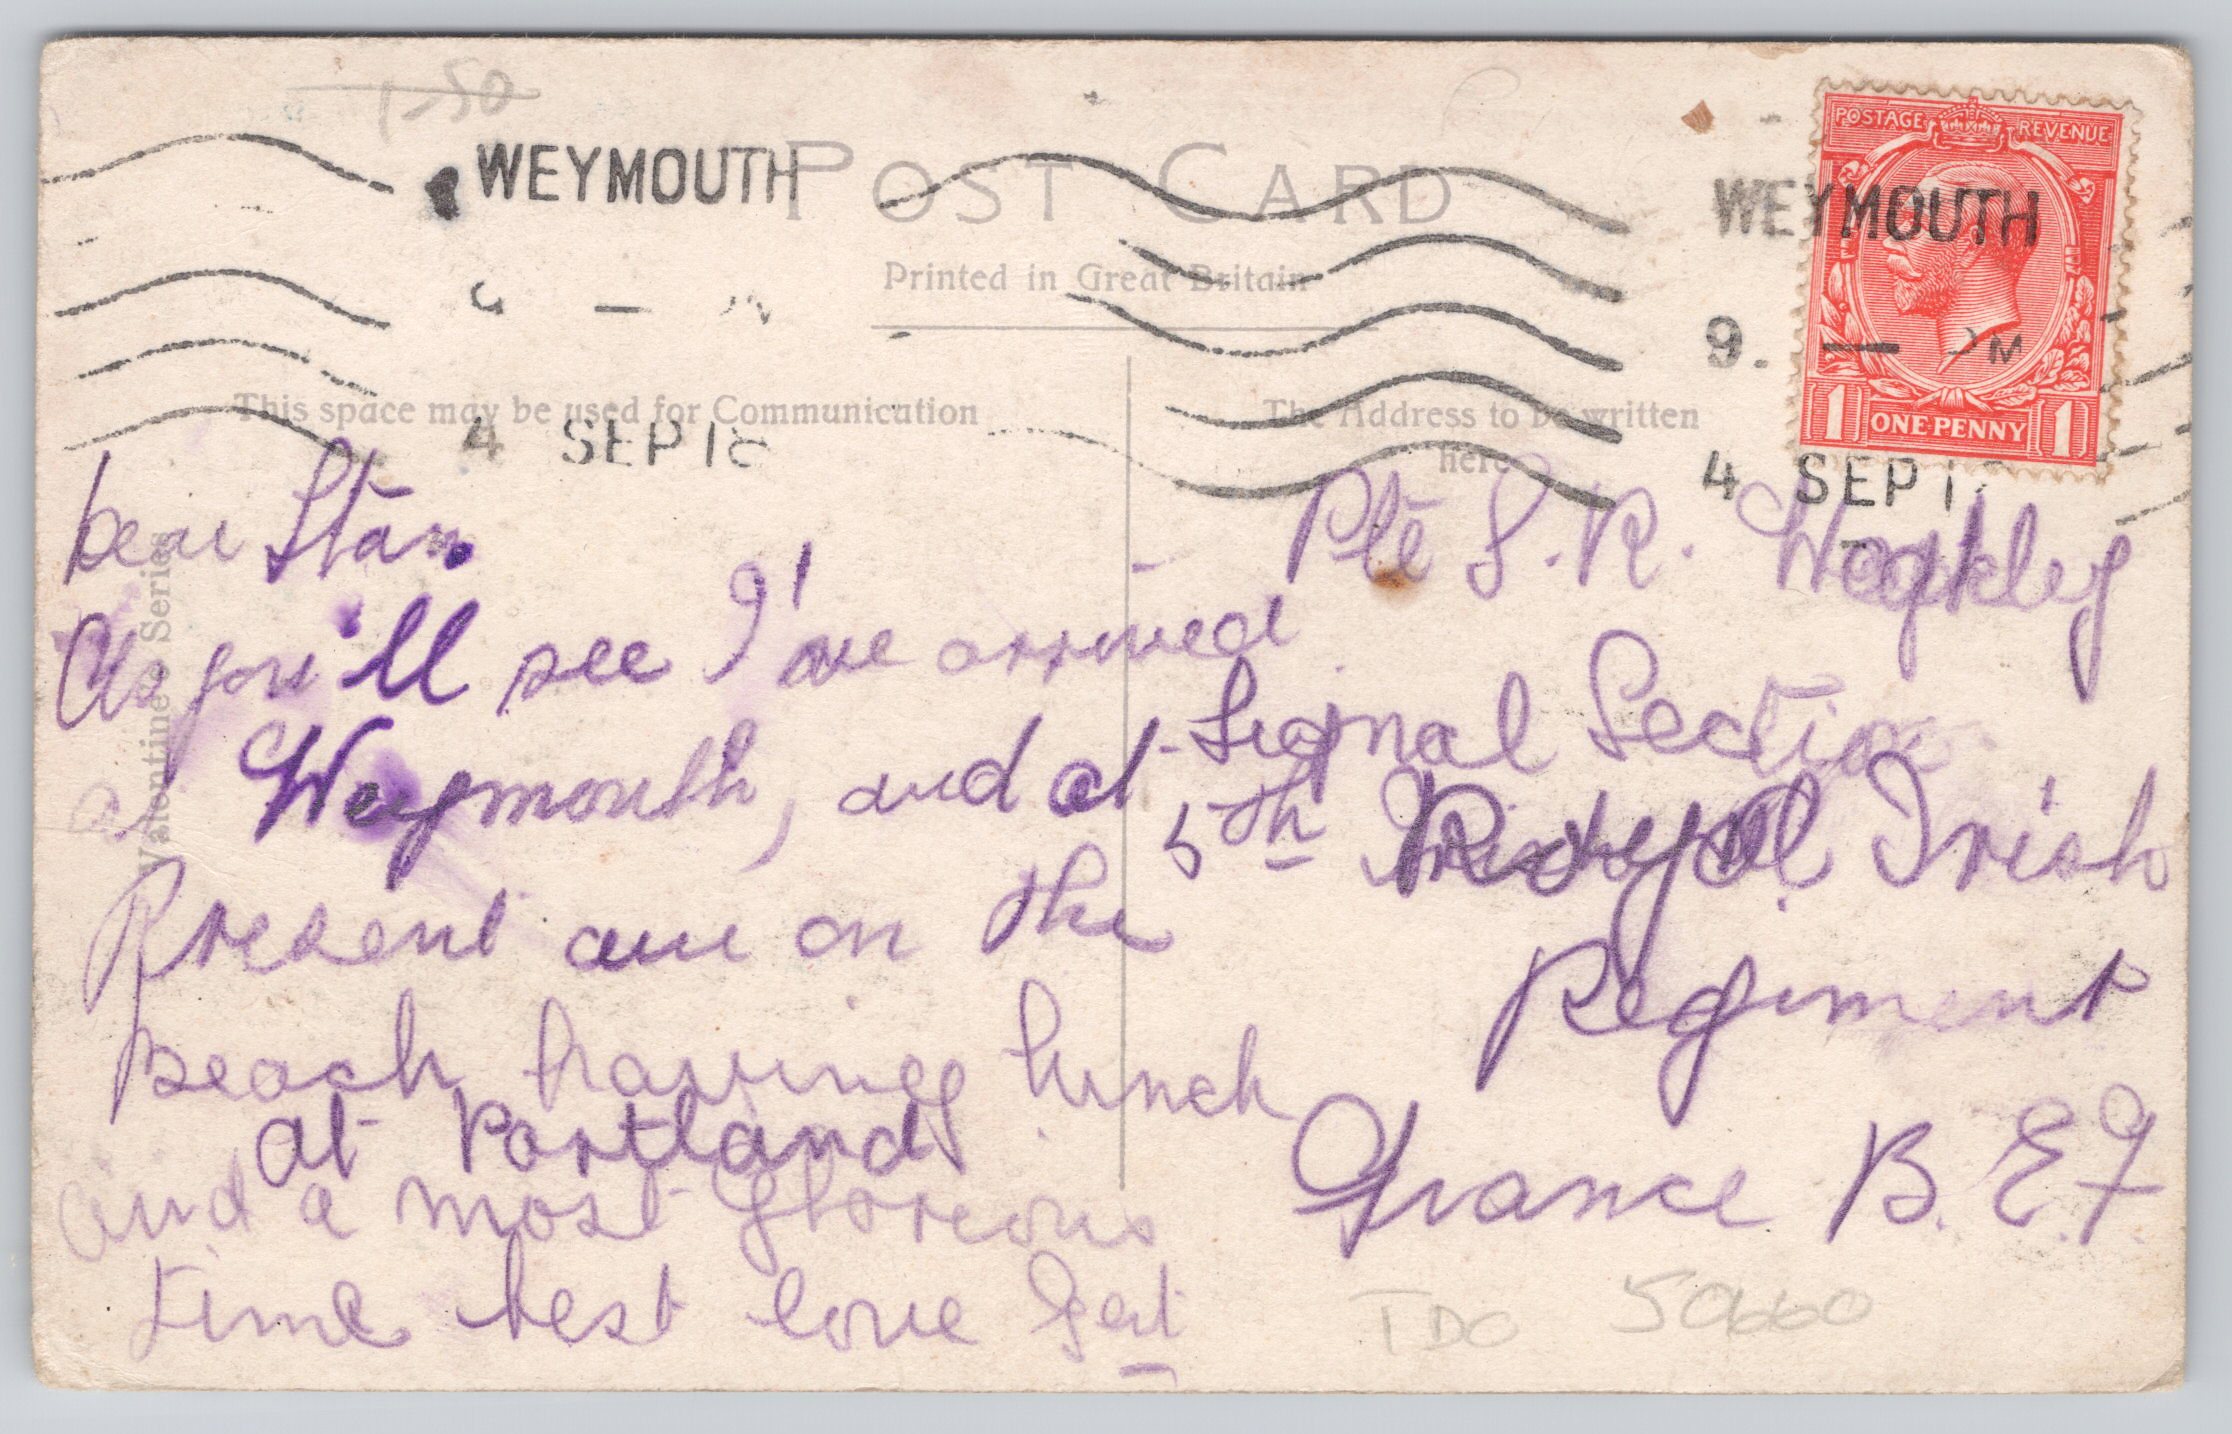 1-50
WEYMOUTH
POST CARD
Printed in Great Britain
4 SEP 18
WEYMOUTH
9. — PM
4 SEP 1
POSTAGE REVENUE
1 ONE PENNY 1
This space may be used for Communication
The Address to be written
here
Valentine's Series
Dear Stan.
As you'll see I've arrived
at Weymouth, and at
Present am on the
Beach having lunch
at Portland
and a most glorious
time best love Gert
Pte S. R. Weakley
Signal Section
5th Royal Irish
Regiment
France B.E.F
TDO 50660